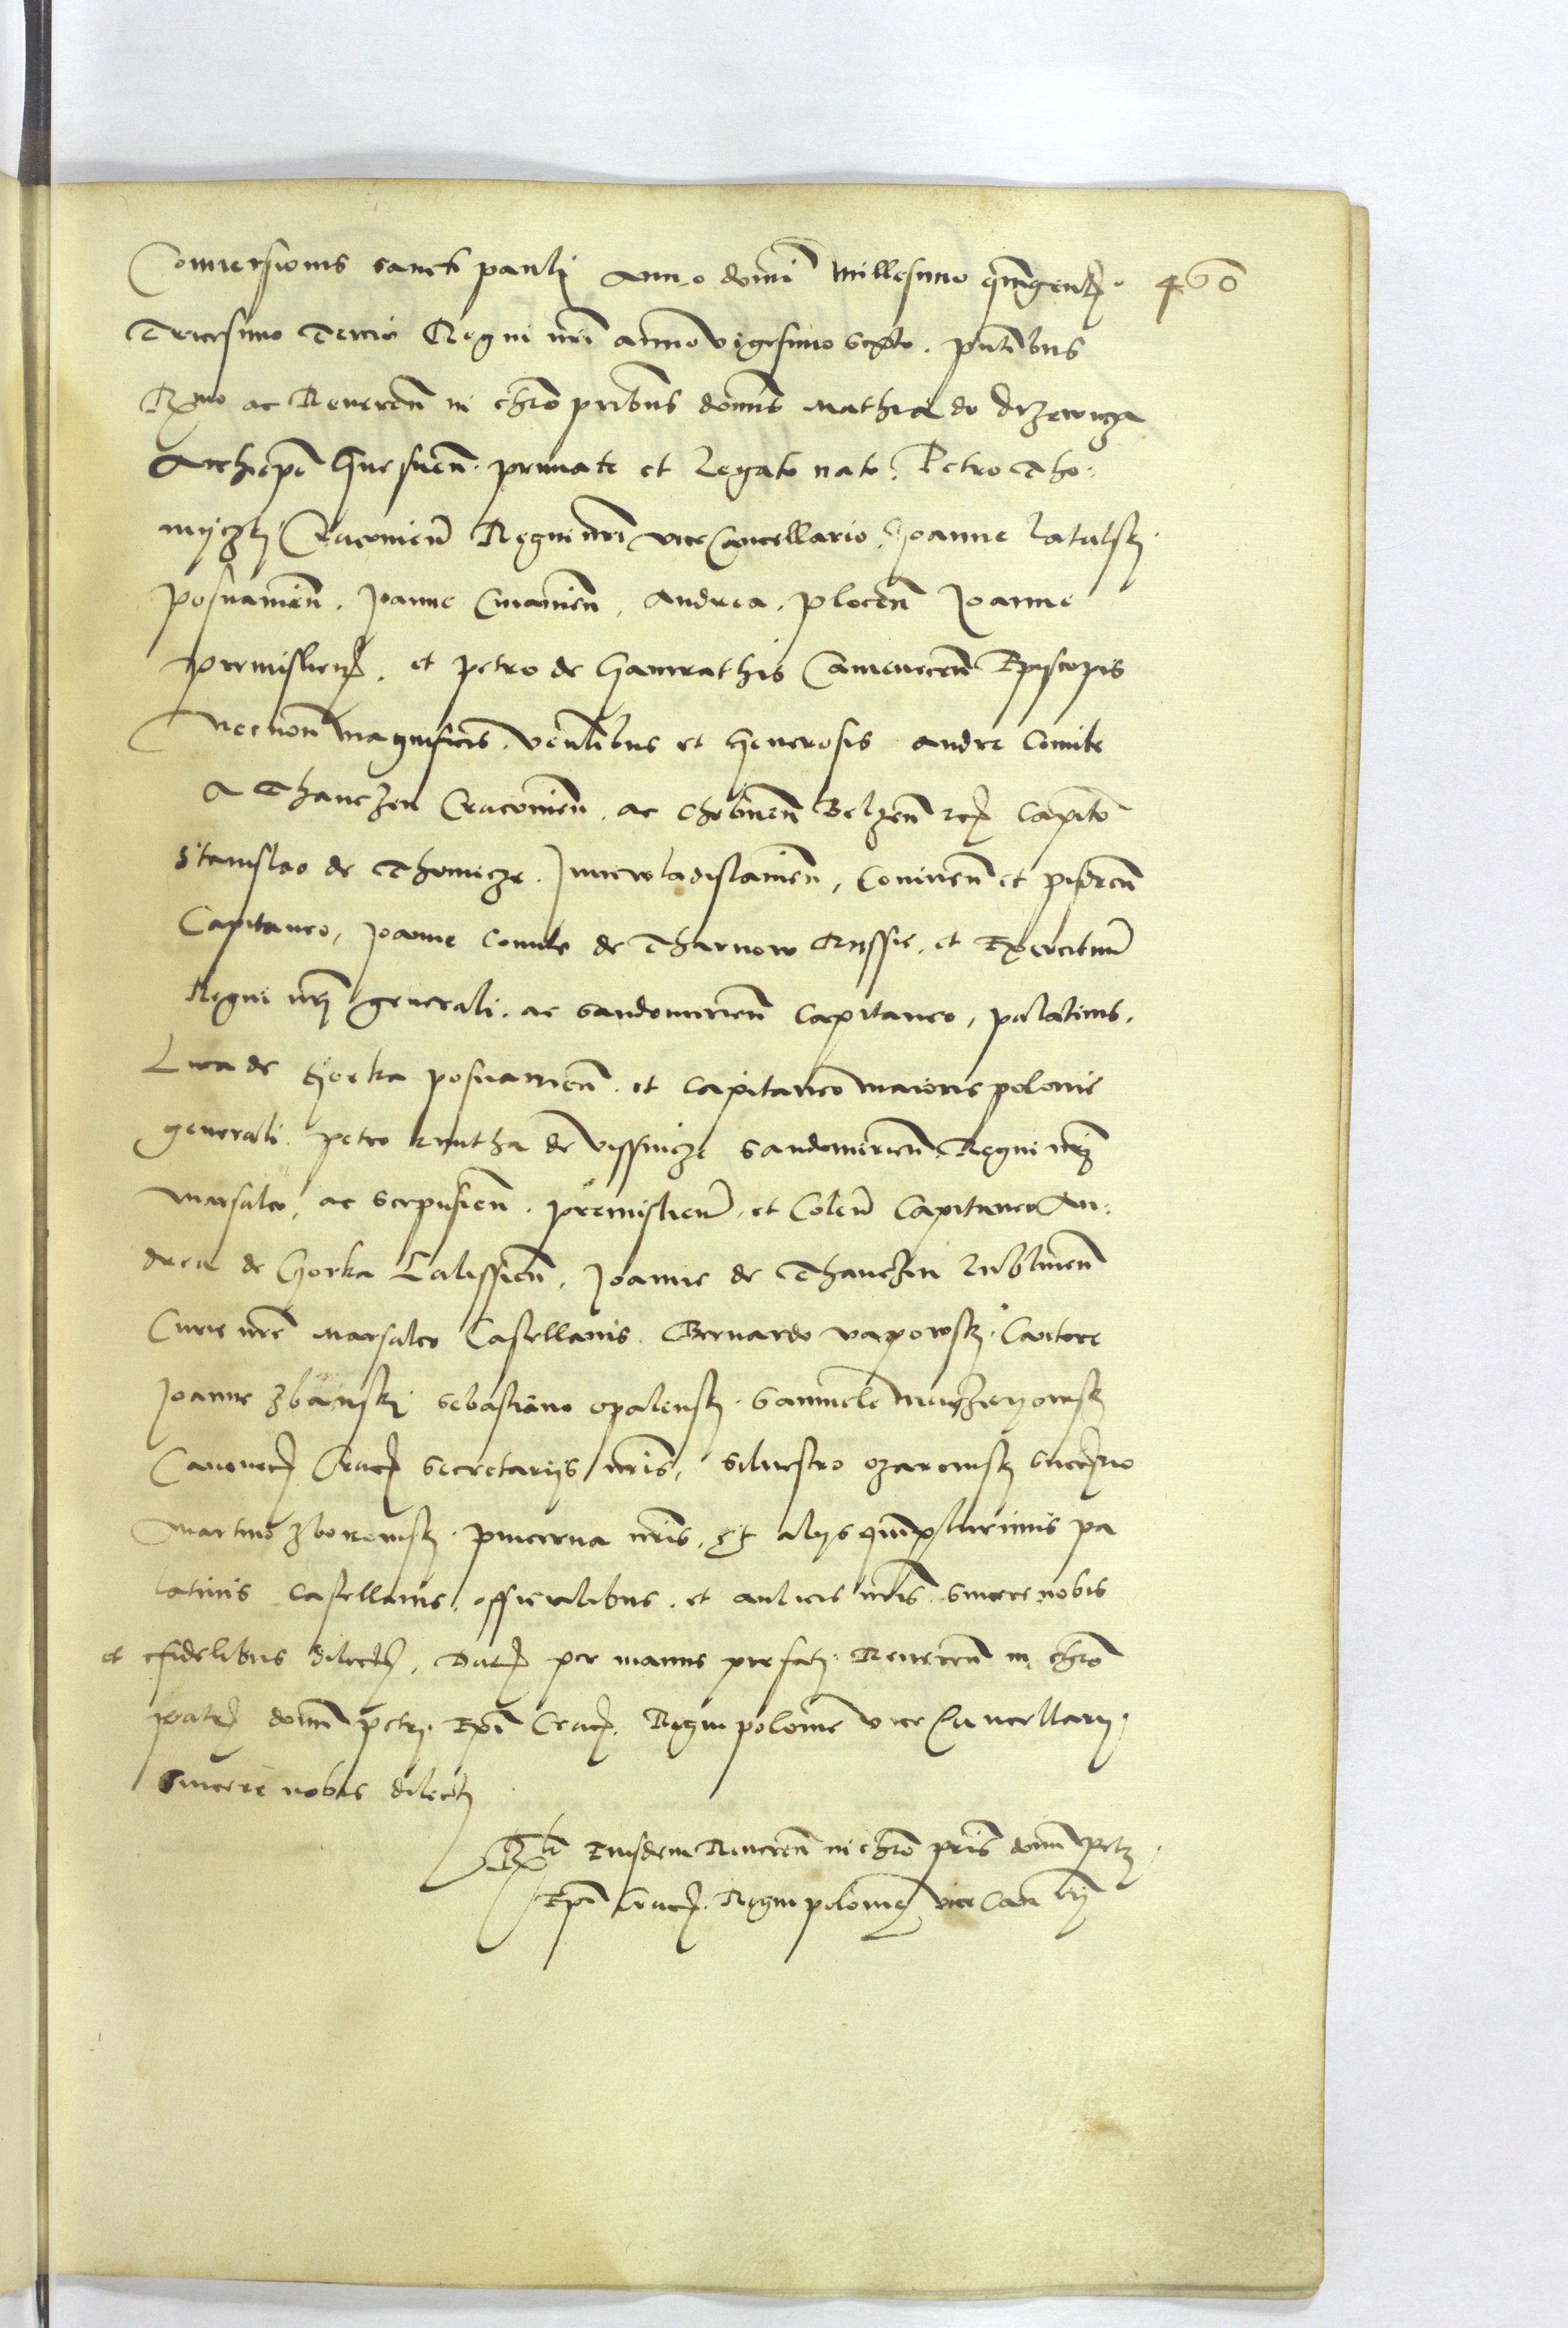 Conuersionis sancti pauli Anno domi Millesimo qungen 460
Tricesimo Tercio Regni nri anno vigesimo sexto. pntibus
Rmo ac Reueren in chro pribus domis Mathia de drzewicza
Archiepo Gnesnen. primate et Legato nato. Petro Tho:
myczki Cracouien Regni nri vice Cancellario. Joanne Latalski
posnanien. Joanne Cuiauien, Andrea, plocen Joanne
premislien, et petro de Gamrathis Camenecen Episcopis
Necnon magnificis. venlibus et Generosis Andre Comite
A Thanczen Cracouien. ac chelmen Belzen rc Capito
Stanislao de Thomicze. Juniewladislauien, Coninen et pisdren
Capitaneo, Joanne Comite de Tharnow Russie. et Exercituu
Regni nri generali. ac Sandomirien Capitaneo, palatinis.
Luca de Gorka posnanien. et Capitaneo maioris polonie
generali. petro kmitha de vissnicze Sandomirien. Regni nri
Marsalco, ac Scepusien. premislien. et Colen Capitaneo An:
drea de Gorka Calissien. Joanne de Thanczin Lublinen
Curie nre Marsalco Castellanis. Bernardo vapowski. Cantore
Joanne zbanski Sebastiano opalenski. Samuele Maczieyowski
Canonic Crac Secretariis nris, Siluestro ozarowski
Martino zborowski. pincerna nris. Et aliis quuplurimis pa
latinis Castellanis. officialibus. et aulicis nris. Syncere nobis
et fidelibus dilectis. Dat per manus prefati. Reueren in chro
patris domi petri. Epi Crac. Regni polonie vice Cancellarii,
Syncere nobis dilecti
Rlo Eiusdem Reueren in chro pris domi petri
Epi Crac. Regni polonie vice Can lrii